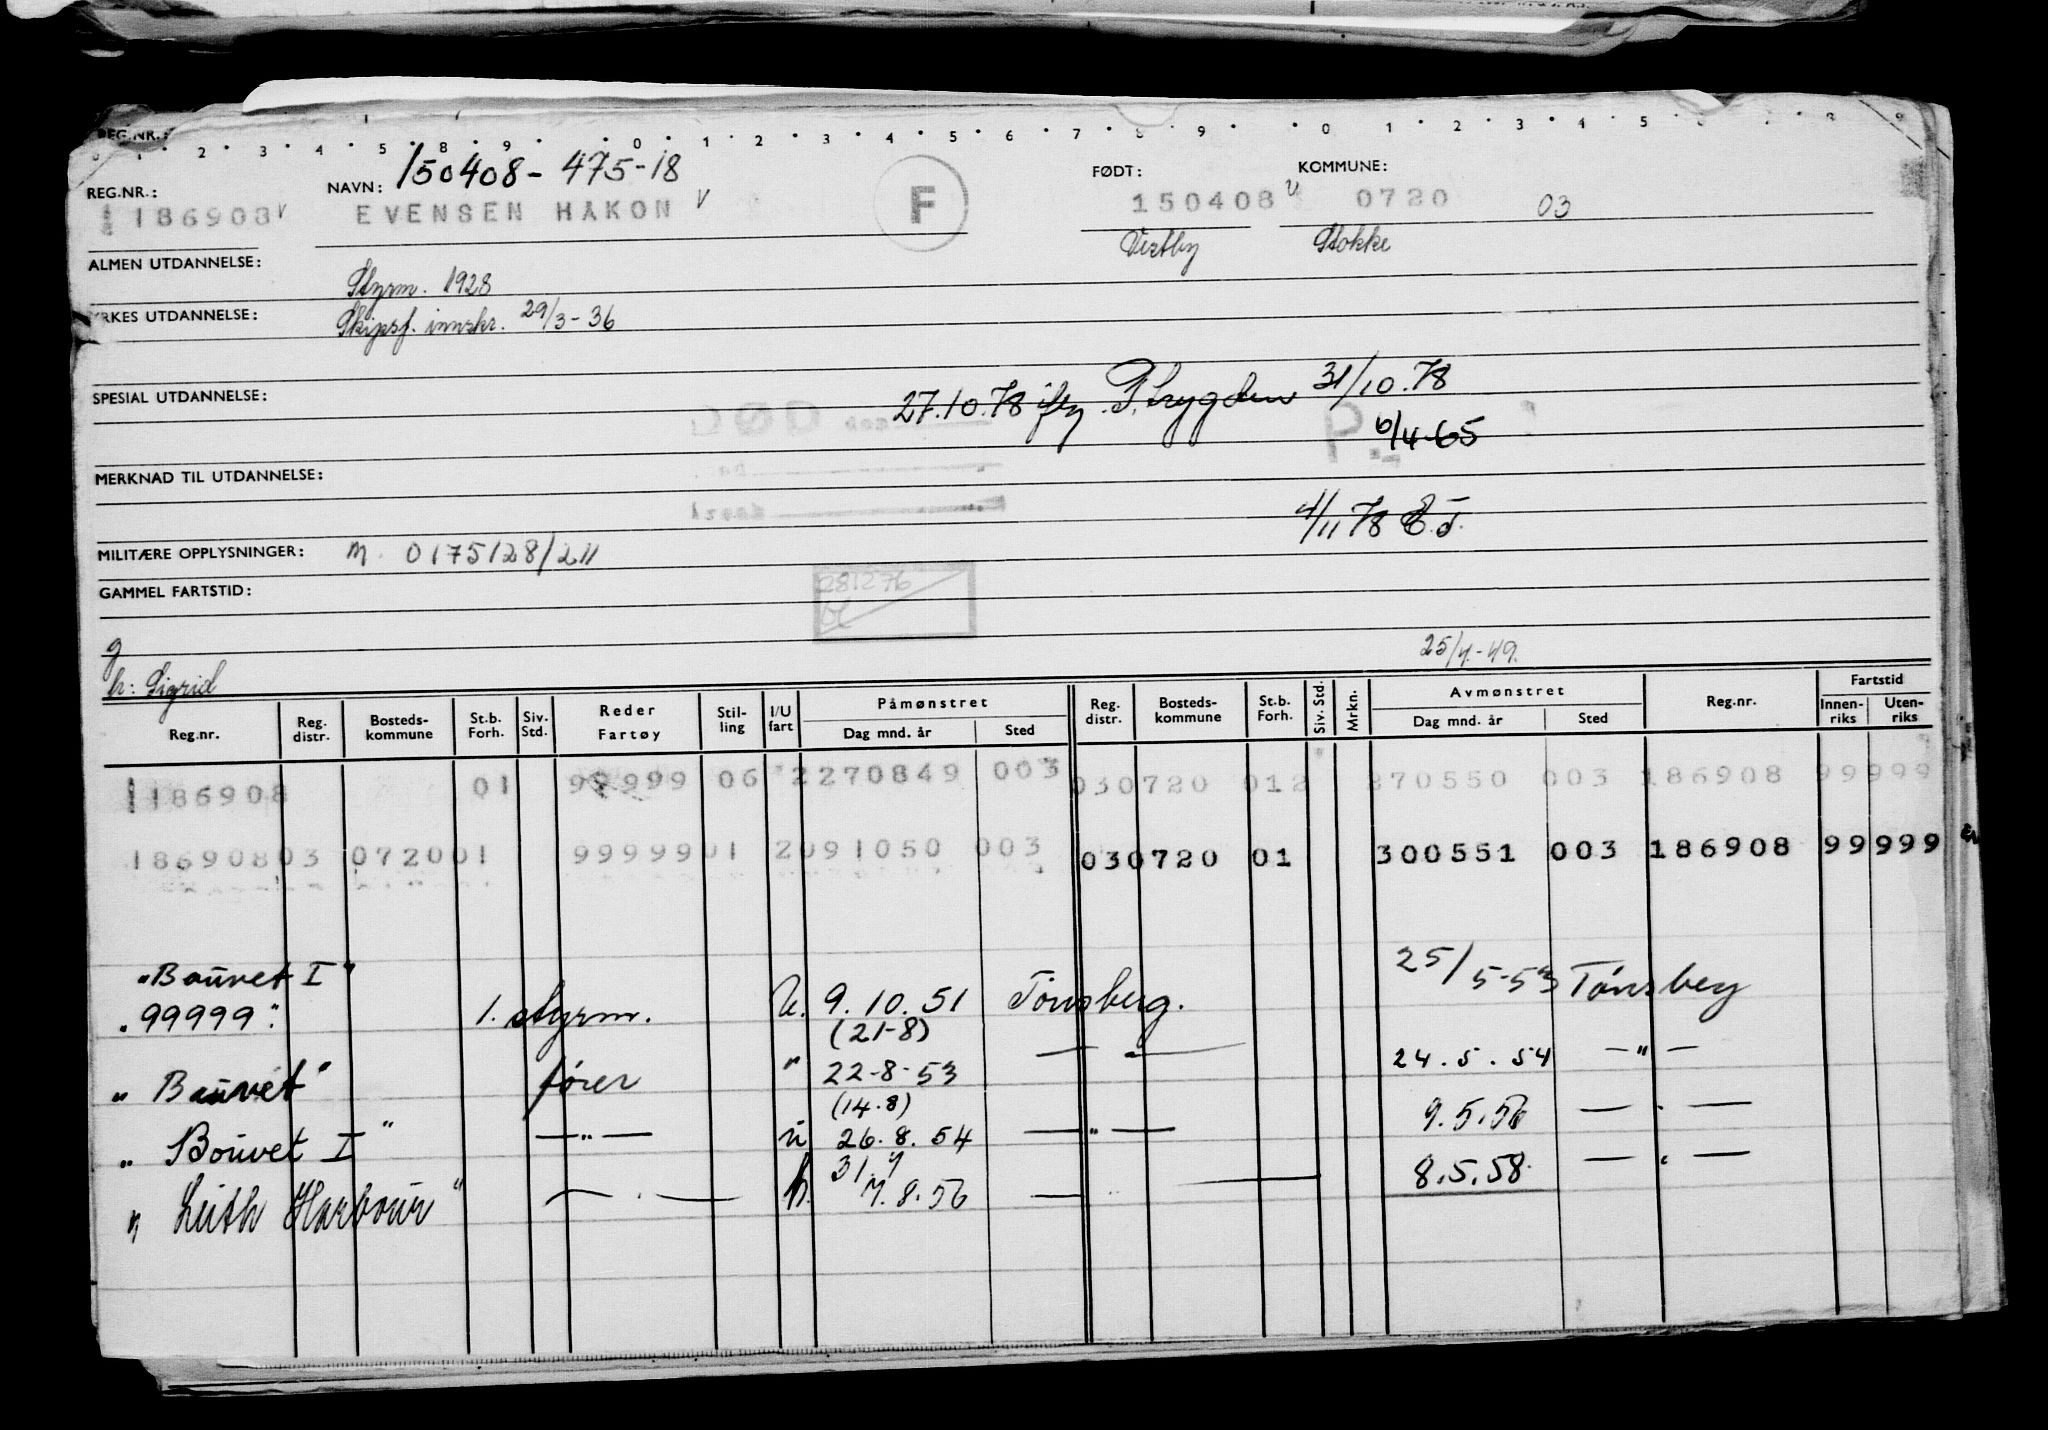 REG.NR.:
150408-475-18
REG.NR.: NAVN: FØDT: KOMMUNE:
186908 EVENSEN HAKON F 150408 0720 03
Vestby Stokke
ALMEN UTDANNELSE:
Styrm. 1928
YRKES UTDANNELSE: Skipsf. innskr. 29/3-36
SPESIAL UTDANNELSE: DØD den 27.10.78 31/10.78
P 6/4-65
MERKNAD TIL UTDANNELSE:
4/11 78
MILITÆRE OPPLYSNINGER: M. 0175128/211
GAMMEL FARTSTID: 281276
g
h: Sigrid 25/4.-49.
Reg.nr. Reg. distr. Bosteds-kommune St.b. Forh. Siv. Std. Reder Fartøy Stil-ling I/U fart Påmønstret Dag mnd. år Sted Reg. distr. Bosteds-kommune St.b. Forh. Siv. Std. Mrkn. Avmønstret Dag mnd. år Sted Reg.nr. Fartstid Innen-riks Uten-riks
186908 01 99999 06 2270849 003 030720 012 270550 003 186908 99999
186908 03 0720 01 99999 01 2091050 003 030720 01 300551 003 186908 99999
"Bouvet I"
"99999" 1. styrm. U. 9.10.51 Tönsberg. 25/5-53 Tönsberg
(21-8)
" Bouvet" fører " 22-8-53 — " — 24.5.54 — " —
(14.8)
" Bouvet I" — " — U 26.8.54 — " — 9.5.56 — " —
31.7
" Leith Harbour" — " — 7.8.56 — " — 8.5.58. — " —